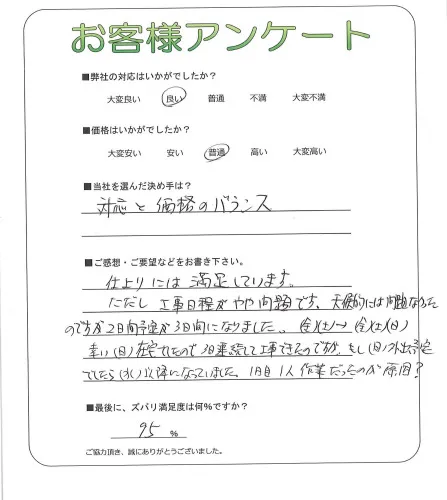 お客様アンケート
■弊社の対応はいかがでしたか？
大変良い 良い 普通 不満 大変不満
■価格はいかがでしたか？
大変安い 安い 普通 高い 大変高い
■当社を選んだ決め手は？
対応と価格のバランス
■ご感想・ご要望などをお書き下さい。
仕上りには満足しています。
ただし工事日程がやや問題です。天候的には問題なかった
のですが2日間予定が3日間になりました。(金)(土)→(金)(土)(日)
幸い(日)在宅でしたので3日連続して工事できたのですが、もし(日)外出予定
でしたら(水)以降になっていました。1日目1人作業だったのが原因？
■最後に、ズバリ満足度は何%ですか？
95 %
ご協力頂き、誠にありがとうございました。